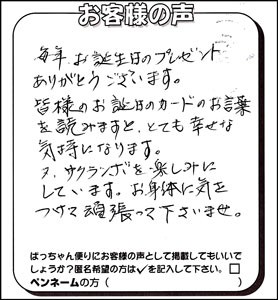 お客様の声
毎年、お誕生日のプレゼント
ありがとうございます。
皆様のお誕日のカードのお言葉
を読みますと、とても幸せな
気持になります。
又、サクランボを楽しみに
しています。お身体に気を
つけて頑張って下さいませ。
ばっちゃん便りにお客様の声として掲載してもいいで
しょうか?匿名希望の方は✓を記入して下さい。□
ペンネームの方( )